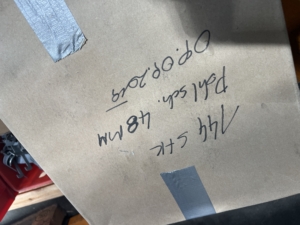 144 Stk
Pdhlsch. 48mm
09.09.2019